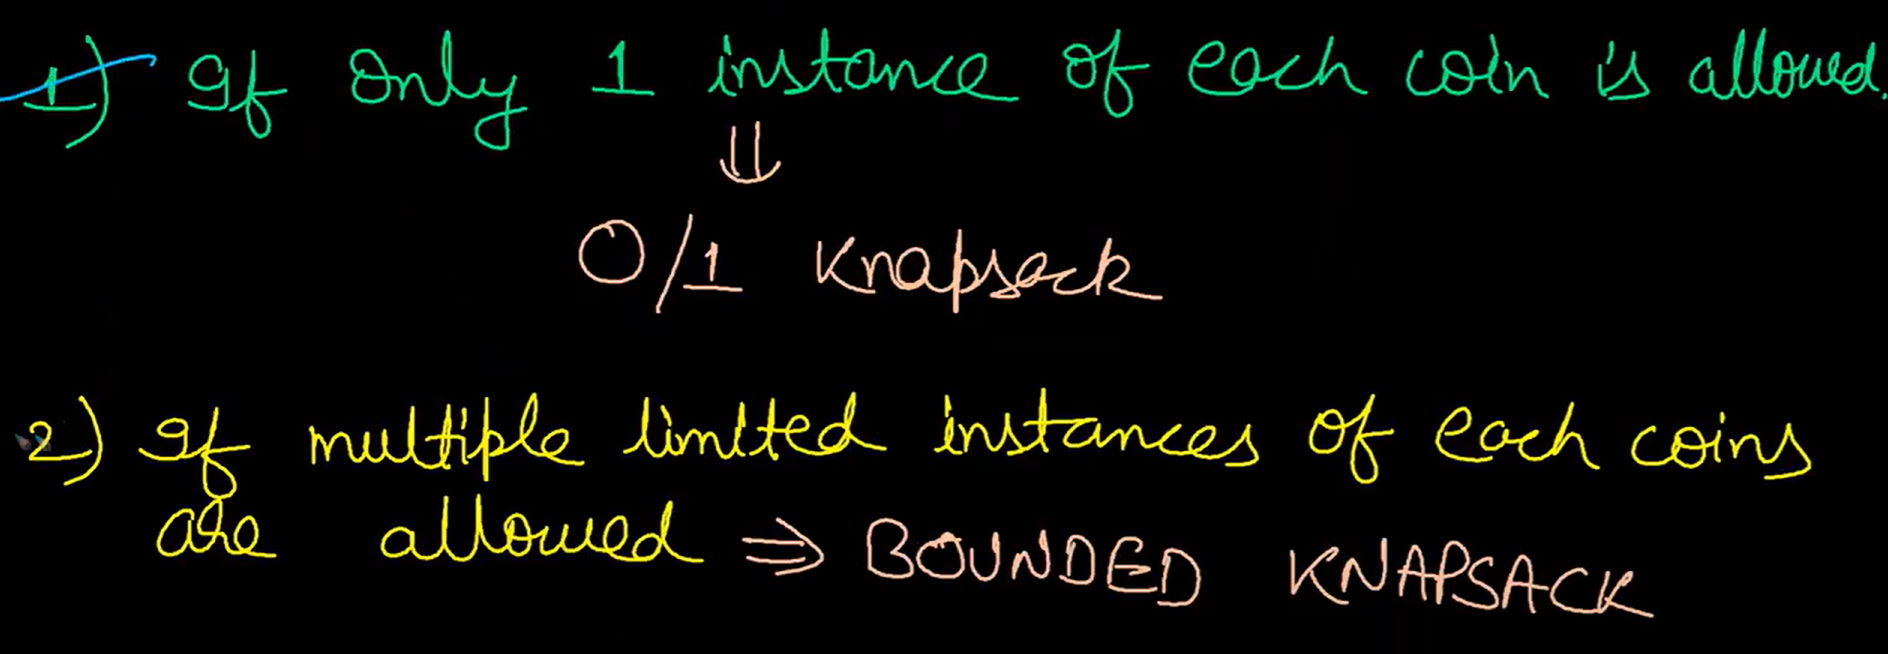 1) If only 1 instance of each coin is allowed.
⇓
0/1 Knapsack
2) If multiple limited instances of each coins
are allowed ⇒ BOUNDED KNAPSACK